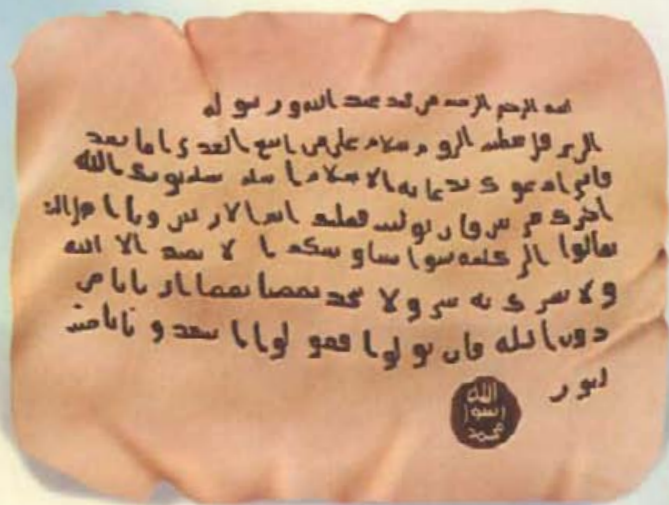 الله الرحمن الرحيم من محمد عبد الله ورسوله
الى هرقل عظيم الروم سلام على من اتبع الهدى اما بعد
فانى ادعوك بدعاية الاسلام اسلم تسلم يوتك الله
اجرك مرتين فان توليت فعليك اثم الاريسين ويا اهل الكتاب
تعالوا الى كلمة سوا بيننا وبينكم ا لا نعبد الا الله
ولا نشرك به شى ولا يتخذ بعضنا بعضا اربابا من
دون الله فان تولوا فقولوا اشهدو بانا مسلمون
الله
رسول
محمد